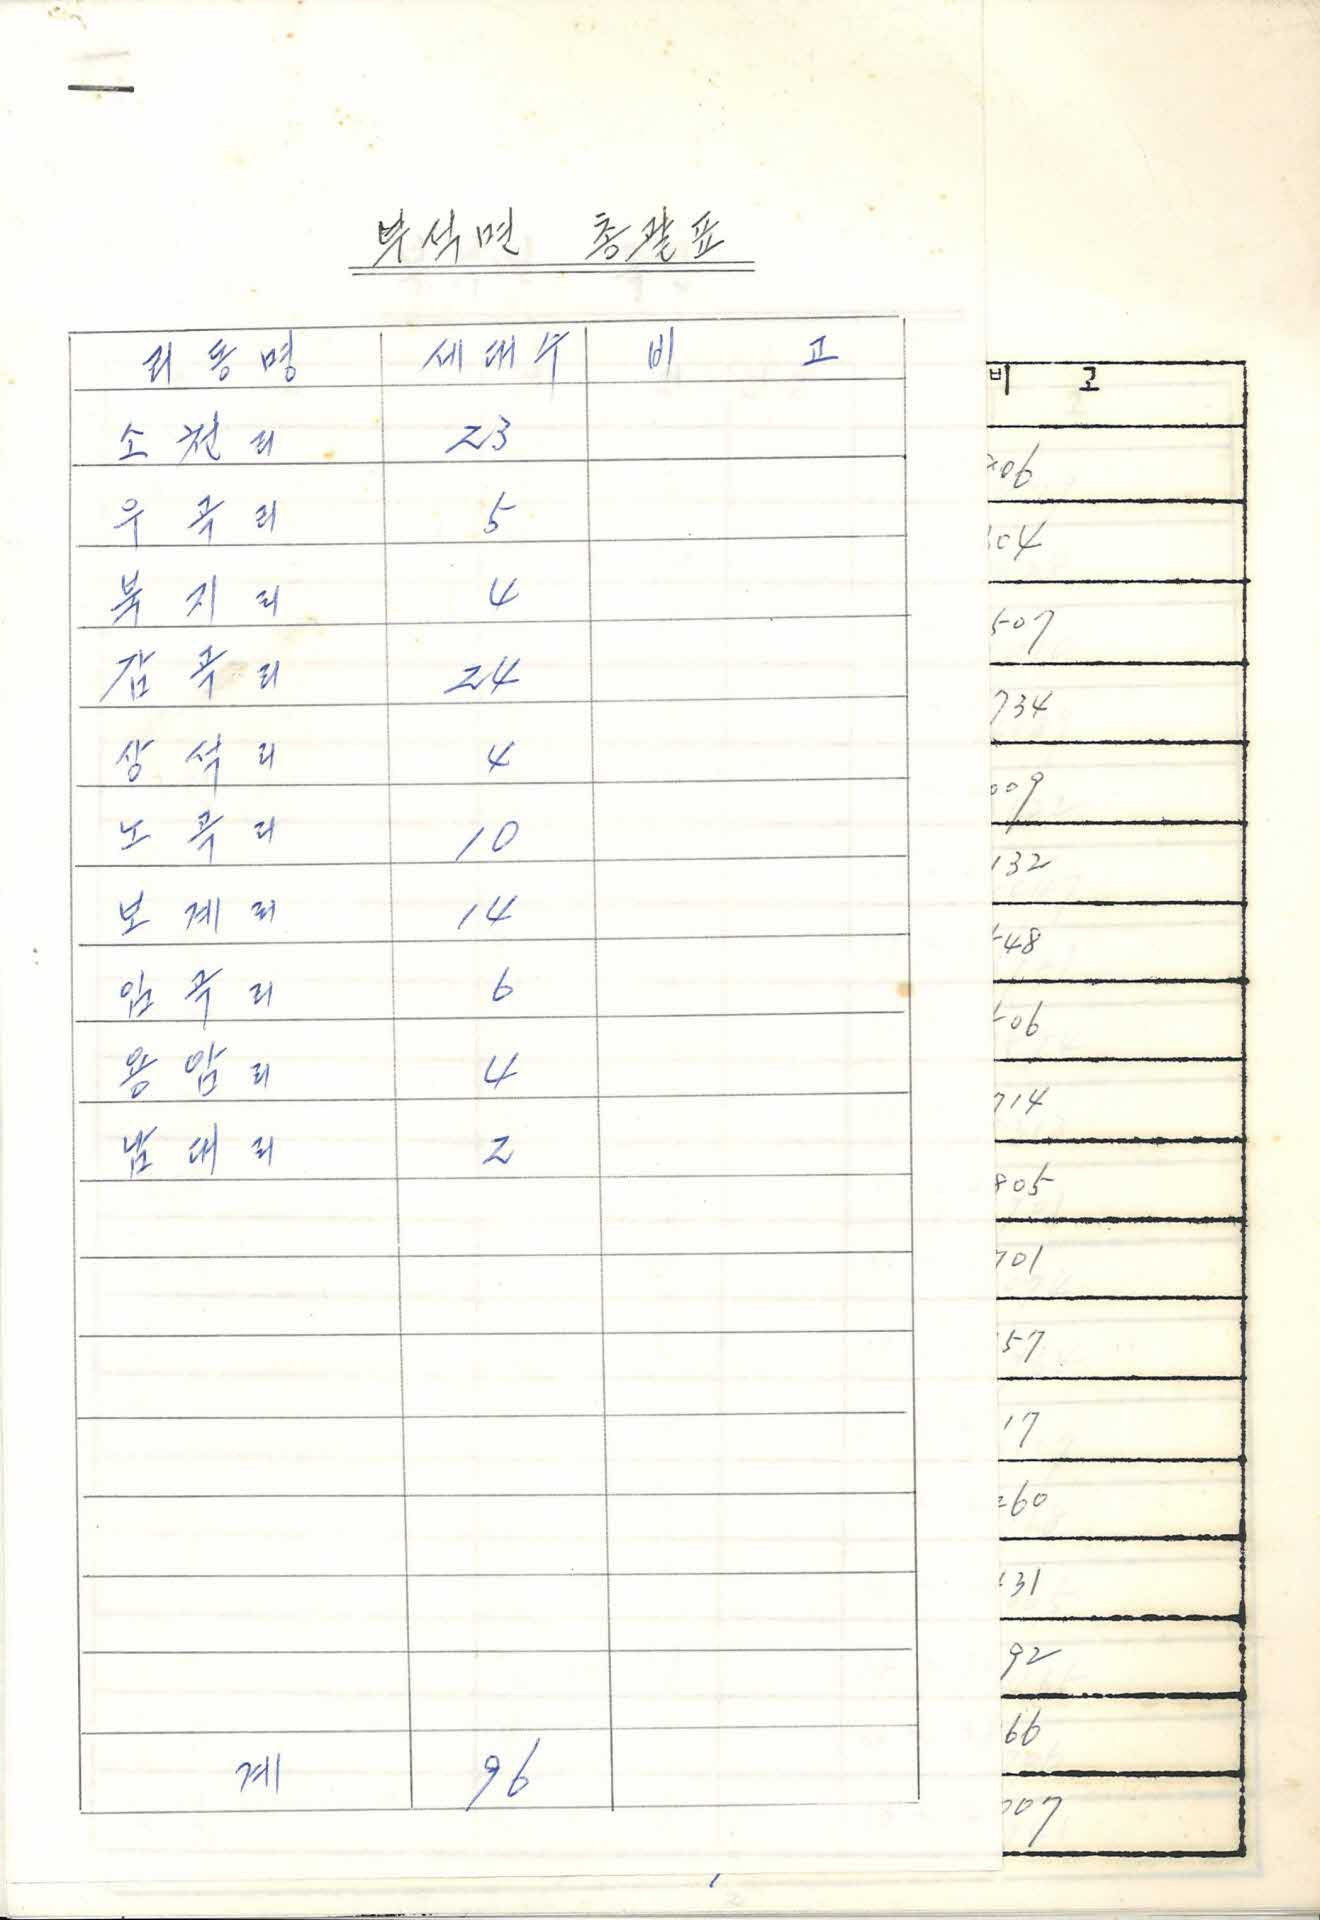 부석면 총괄표
리동명 세대수 비 고
소천리 23
우곡리 5
북지리 4
감곡리 24
상석리 4
노곡리 10
보계리 14
임곡리 6
용암리 4
남대리 2
계 96
비 고
06
04
507
734
009
132
48
06
714
805
701
57
17
60
31
92
66
007
1